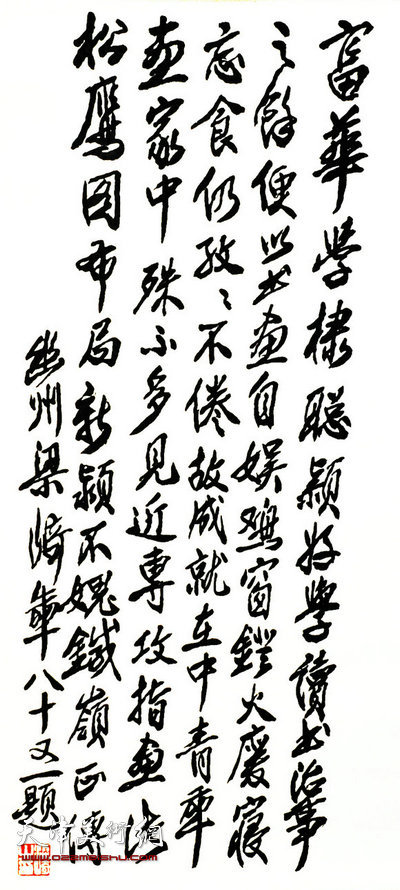 富華學棣聰穎好學讀書治事
之餘便以書畫自娛鷄窗鐙火廢寢
忘食仍孜〻不倦故成就在中青年
畫家中殊不多見近專攻指畫此
松鷹图布局新穎不媿鐵嶺正傳
幽州梁崎年八十又一題
天津美术網
www.022meishu.com